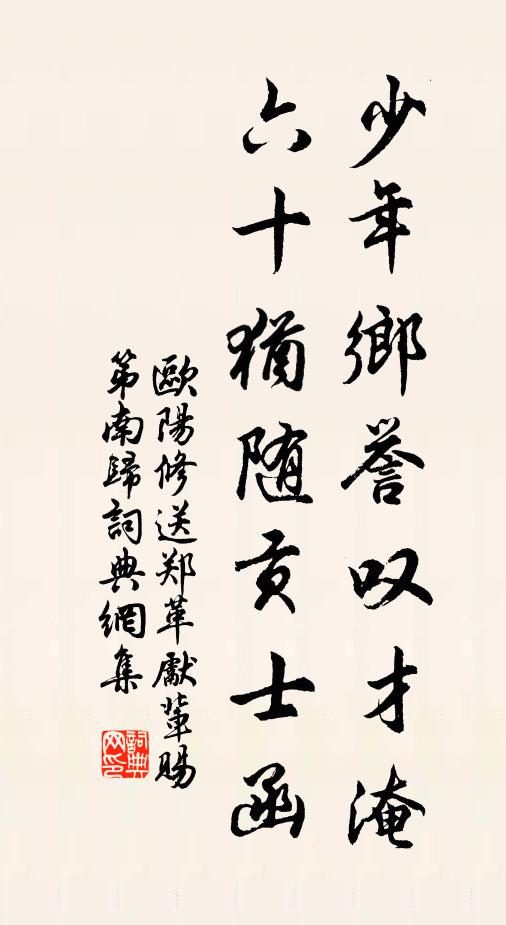 少年鄉譽叹才淹
六十猶随贡士函
歐陽修送郑革獻輩賜
第南歸詞典網集
詞典网印